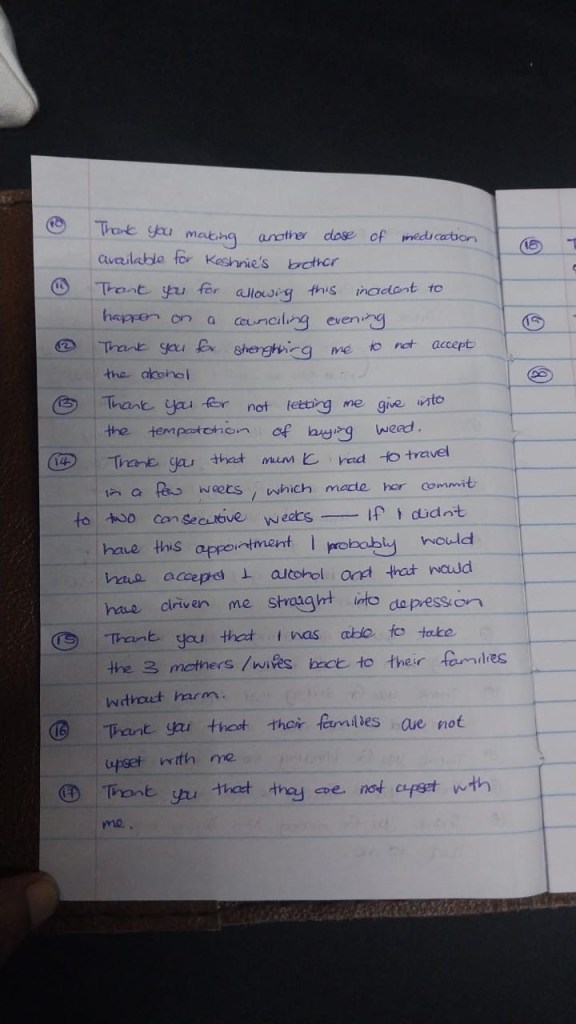 10 Thank you making another dose of medication
available for Keshnie's brother
11 Thank you for allowing this incident to
happen on a counciling evening
12 Thank you for strenghning me to not accept
the alcohol
13 Thank you for not letting me give into
the temptation of buying weed.
14 Thank you that mum K had to travel
in a few weeks, which made her commit
to two consecutive weeks — If I didn't
have this appointment I probably would
have accepted 1 alcohol and that would
have driven me straight into depression
15 Thank you that I was able to take
the 3 mothers/wifes back to their families
without harm.
16 Thank you that their families are not
upset with me
17 Thank you that they are not upset with
me.
18
19
20